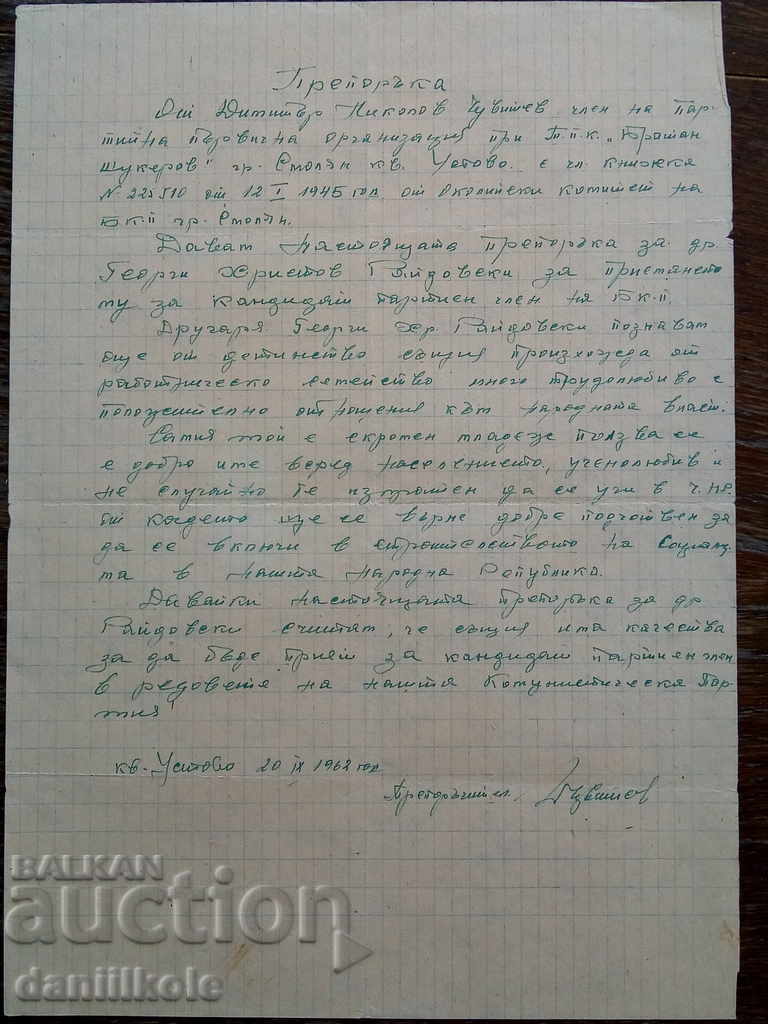 Препоръка
От Димитър Николов Чувишев член на Пар-
тийна първична организация при Т.П.К. „Братан
Шукеров" гр. Смолян кв. Устово с чл. книжка
№ 225510 от 12 I 1945 год. от Околийски комитет на
БКП гр. Смолян.
Давам настоящата препоръка за др.
Георги Христов Райдовски за приемането
му за кандидат партиен член на БКП.
Другаря Георги Хр. Райдовски познавам
още от детинство същия произхожда от
работническо семейство много трудолюбиво с
положително отношения към народната власт.
Самия той е скромен младеж ползва се
с добро име веред населението, ученолюбив и
не случайно бе изпратен да се учи в
от където ще се върне добре подготвен за
да се включи в строителството на
в нашта народна Република.
Давайки настоящата препоръка за др.
Райдовски считам, че същия има качества
за да бъде приет за кандидат партиен член
в редовете на нашта Комунистическа Пар-
тия
кв. Устово 20 IX 1962 год.
Препоръчител: Чувишев
BALKAN
auction
daniilkole